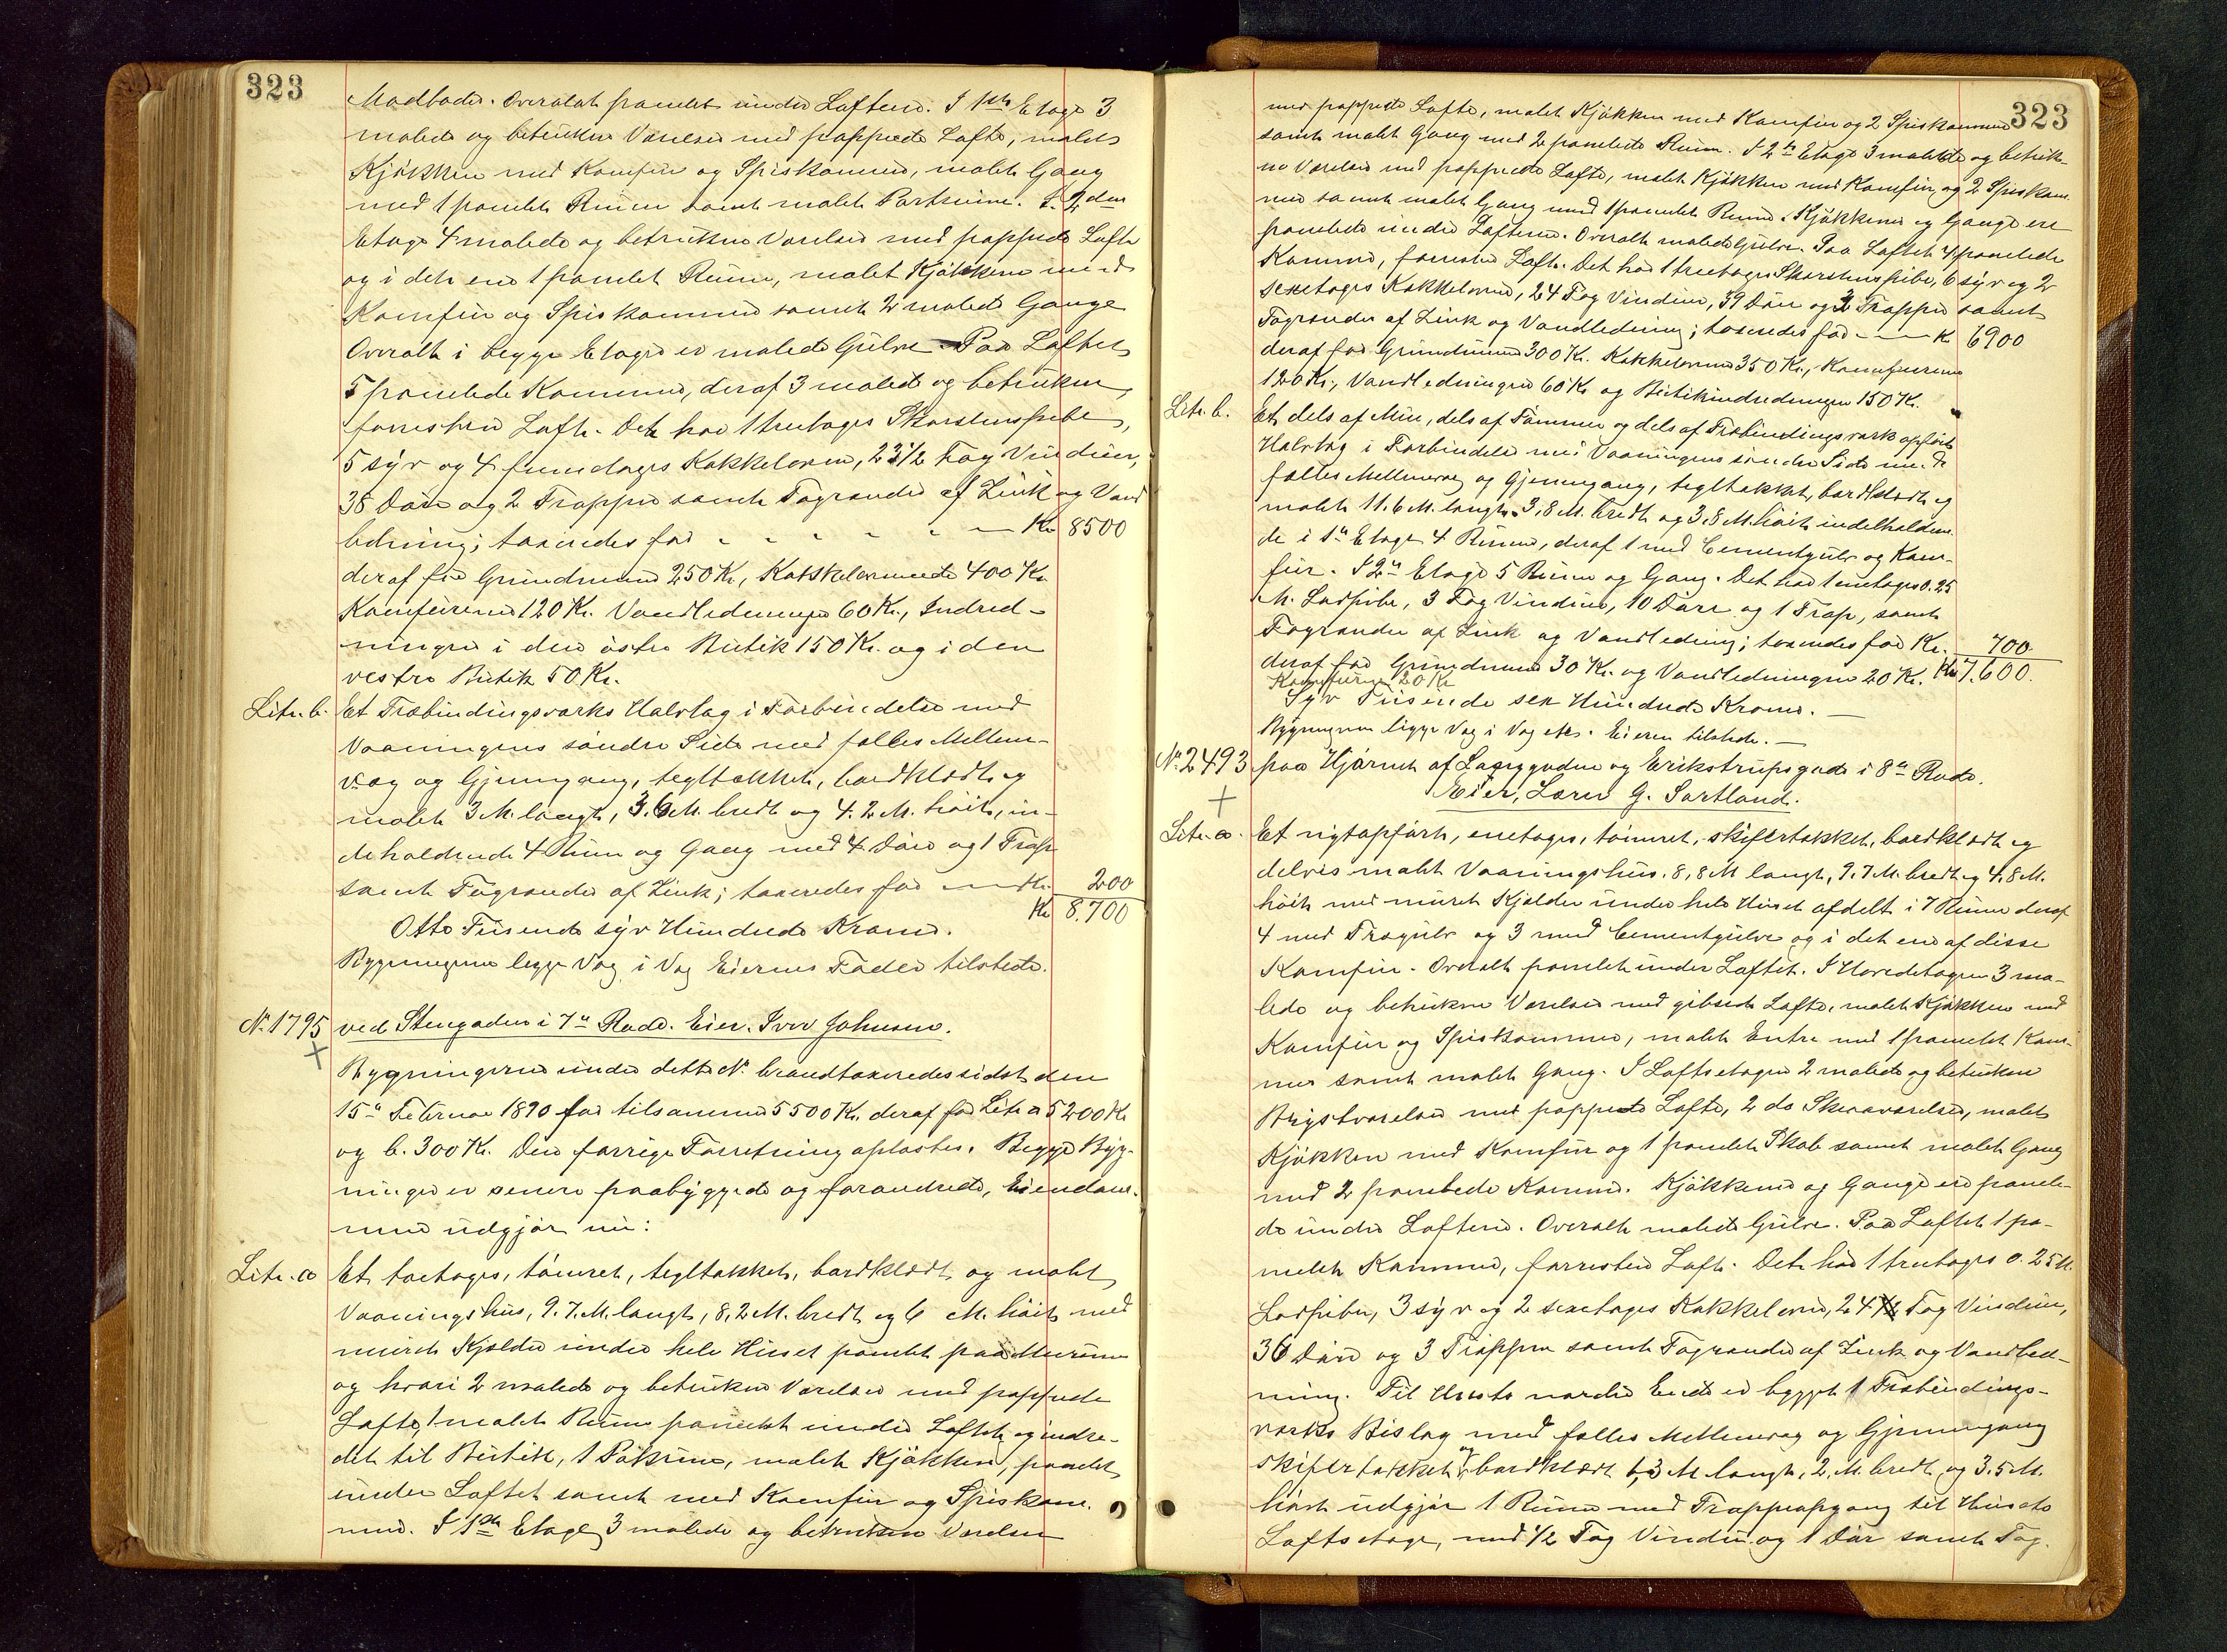 323
Madboder. Overalt panelet under Loftene. I 1ste Etage 3
malede og betrukne Værelser med pappede Lofte, malet
Kjøkken med Komfur og Spiskammer, malet Gang
med 1 panelet Rum samt malet Portrum. I 2den
Etage 4 malede og betrukne Værelser med pappede Lofte
og i det ene 1 panelet Rum, malet Kjøkken med
Komfur og Spiskammer samt 2 malede Gange
Overalt i begge Etager er malede Gulve. Paa Loftet
5 panelede Kammer, deraf 3 malede og betrukne,
forresten Loft. Det har 1 treetages Skorstenspibe,
5 syv og 4 femetages Kakkelovne, 23 1/2 Fag Vinduer,
38 Døre og 2 Trapper samt Tagrender af Zink og Vand
ledning; taxeredes for - - - - - Kr 8500
deraf for Grundmuren 250 Kr, Kakkelovnene 400 Kr.
Komfurene 120 Kr. Vandledningen 60 Kr., Indred-
ningen i den østre Butik 150 Kr. og i den
vestre Butik 50 Kr.
Litr. b. Et Træbindingsværks Halvtag i Forbindelse med
Vaaningens søndre Side med fælles Mellem-
væg og Gjennemgang, tegltækket, bordklædt og
malet 3 M. langt, 3.6 M. bredt og 4.2 M. høit, in-
deholdende 4 Rum og Gang med 4 Døre og 1 Trap
samt Tagrender af Zink; taxeredes for Kr. 200
Kr 8.700
Otte Tusende syv Hundrede Kroner.
Bygningerne ligge Væg i Væg Eierens Fader tilstede.
No. 1795 ved Stengaden i 7de Rode. Eier. Iver Johnsen.
Bygningerne under dette No. brandtaxeredes sidst den
15de Februar 1890 for tilsammen 5500 Kr. deraf for Litr a 5200 Kr
og b. 300 Kr. Den forrige Forretning oplæstes. Begge Byg-
ninger er senere paabyggede og forandrede, Eiendom-
men udgjør nu:
Litr. a Et toetages, tømret, tegltækket, bordklædt og malet
Vaaningshus, 9.7 M. langt, 8,2 M. bredt og 6 M. høit med
muret Kjælder under hele Huset panelet paa Murene
og hvori 2 malede og betrukne Værelser med pappede
Lofte, 1 malet Rum panelet under Loftet og indre-
det til Butik, 1 Pakrum, malet Kjøkken, panelet
under Loftet samt med Komfur og Spiskam-
mer. I 1ste Etage 3 malede og betrukne Værelser
323
med pappede Lofte, malet Kjøkken med Komfur og 2 Spiskammer
samt malet Gang med 2 panelede Rum. I 2den Etage 3 malede og betruk-
ne Værelser med pappede Lofte, malet Kjøkken med Komfur og 2 Spiskam-
mer samt malet Gang med 1 panelet Rum. Kjøkkener og Gange ere
panelede under Loftene. Overalt malede Gulve. Paa Loftet 4 panelede
Kammer, forresten Loft. Det har 1 treetages Skorstenspibe, 6 syv og 2
sexetages Kakkelovne, 24 Fag Vinduer, 39 Døre og 3 Trapper samt
Tagrender af Zink og Vandledning; taxeredes for - - - Kr 6900
deraf for Grundmuren 300 Kr. Kakkelovnene 350 Kr., Komfurene
120 Kr., Vandledningen 60 Kr og Butikindredningen 150 Kr.
Litr. b. Et dels af Mur, dels af Tømmer og dels af Træbindingsværk opført
Halvtag i Forbindelse med Vaaningens søndre Side med
fælles Mellemvæg og Gjennemgang, tegltækket, bordklædt og
malet 11.6 M. langt. 3,8 M. bredt og 3.8 M. høit indeholden-
de i 1ste Etage 4 Rum, deraf 1 med Cementgulv og Kom-
fur. I 2den Etage 5 Rum og Gang. Det har 1 enetages 0.25
M. Lodpibe, 3 Fag Vinduer, 10 Døre og 1 Trap, samt
Tagrender af Zink og Vandledning; taxeredes for Kr. 700
deraf for Grundmuren 30 Kr. og Vandledningen 20 Kr. Kr 7.600.
Komfuren 20 Kr
Syv Tusende sex Hundrede Kroner.
Bygningerne ligge Væg i Væg etc. Eieren tilstede.
No. 2493 paa Hjørnet af Langgaden og Erikstrupsgade i 8de Rode.
Eier, Lars G. Sørtland.
Litr. a. Et nyt opført, enetages, tømret, skifertækket, bordklædt og
delvis malet Vaaningshus. 8,8 M langt, 9.7 M. bredt og 4.8 M.
høit med muret Kjælder under hele Huset afdelt i 7 Rum deraf
4 med Trægulv og 3 med Cementgulve og i det ene af disse
Komfur. Overalt panelet under Loftet. I Hovedetagen 3 ma-
lede og betrukne Værelser med gibsede Lofte, malet Kjøkken med
Komfur og Spiskammer, malet Entre med 1 panelet Kam-
mer samt malet Gang. I Loftsetagen 2 malede og betrukne
Brystværelser med pappede Lofte, 2 do Skraaværelser, malet
Kjøkken med Komfur og 1 panelet Skab samt malet Gang
med 2 panelede Kammer. Kjøkkener og Gange ere panele-
de under Loftene. Overalt malede Gulve. Paa Loftet 1 pa-
nelet Kammer, forresten Loft. Det har 1 treetages 0.25 M.
Lodpibe, 3 syv og 2 sexetages Kakkelovne, 24 Fag Vinduer,
36 Døre og 3 Trapper samt Tagrender af Zink og Vandled-
ning. Til Husets nordre Ende er bygget 1 Træbindings-
værks Bislag med fælles Mellemvæg og Gjennemgang
skifertækket og bordklædt 1,3 M langt, 2. M. bredt og 3.5 M.
høit udgjør 1 Rum med Trappeopgang til Husets
Loftsetage, med 1/2 Fag Vindu og 1 Dør samt Tag-